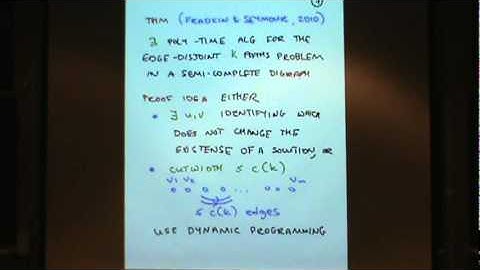 THM (FRADKIN & SEYMOUR, 2010)
∃ POLY-TIME ALG FOR THE
EDGE-DISJOINT K PATHS PROBLEM
IN A SEMI-COMPLETE DIGRAPH
PROOF IDEA EITHER
• ∃ u,v IDENTIFYING WHICH
DOES NOT CHANGE THE
EXISTENSE OF A SOLUTION, OR
• CUTWIDTH ≤ c(k)
V1 V2 Vn
≤ c(k) edges
USE DYNAMIC PROGRAMMING